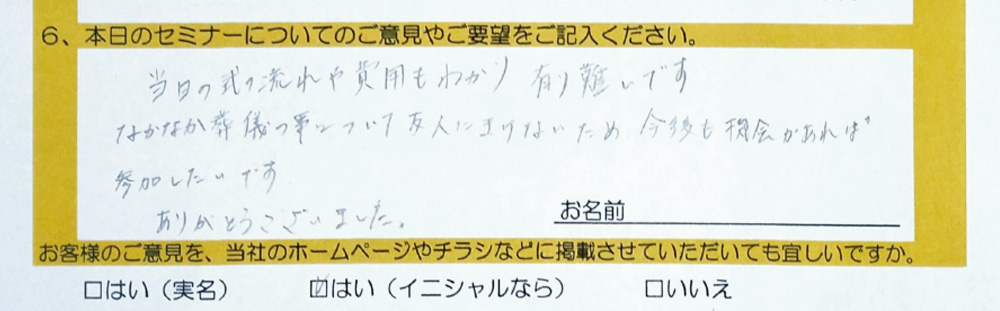 6、本日のセミナーについてのご意見やご要望をご記入ください。
当日の式の流れや費用もわかり 有り難いです
なかなか葬儀の事について友人にきけないため 今後も機会があれば
参加したいです
ありがとうございました。
お名前
お客様のご意見を、当社のホームページやチラシなどに掲載させていただいても宜しいですか。
□はい（実名） ☑はい（イニシャルなら） □いいえ